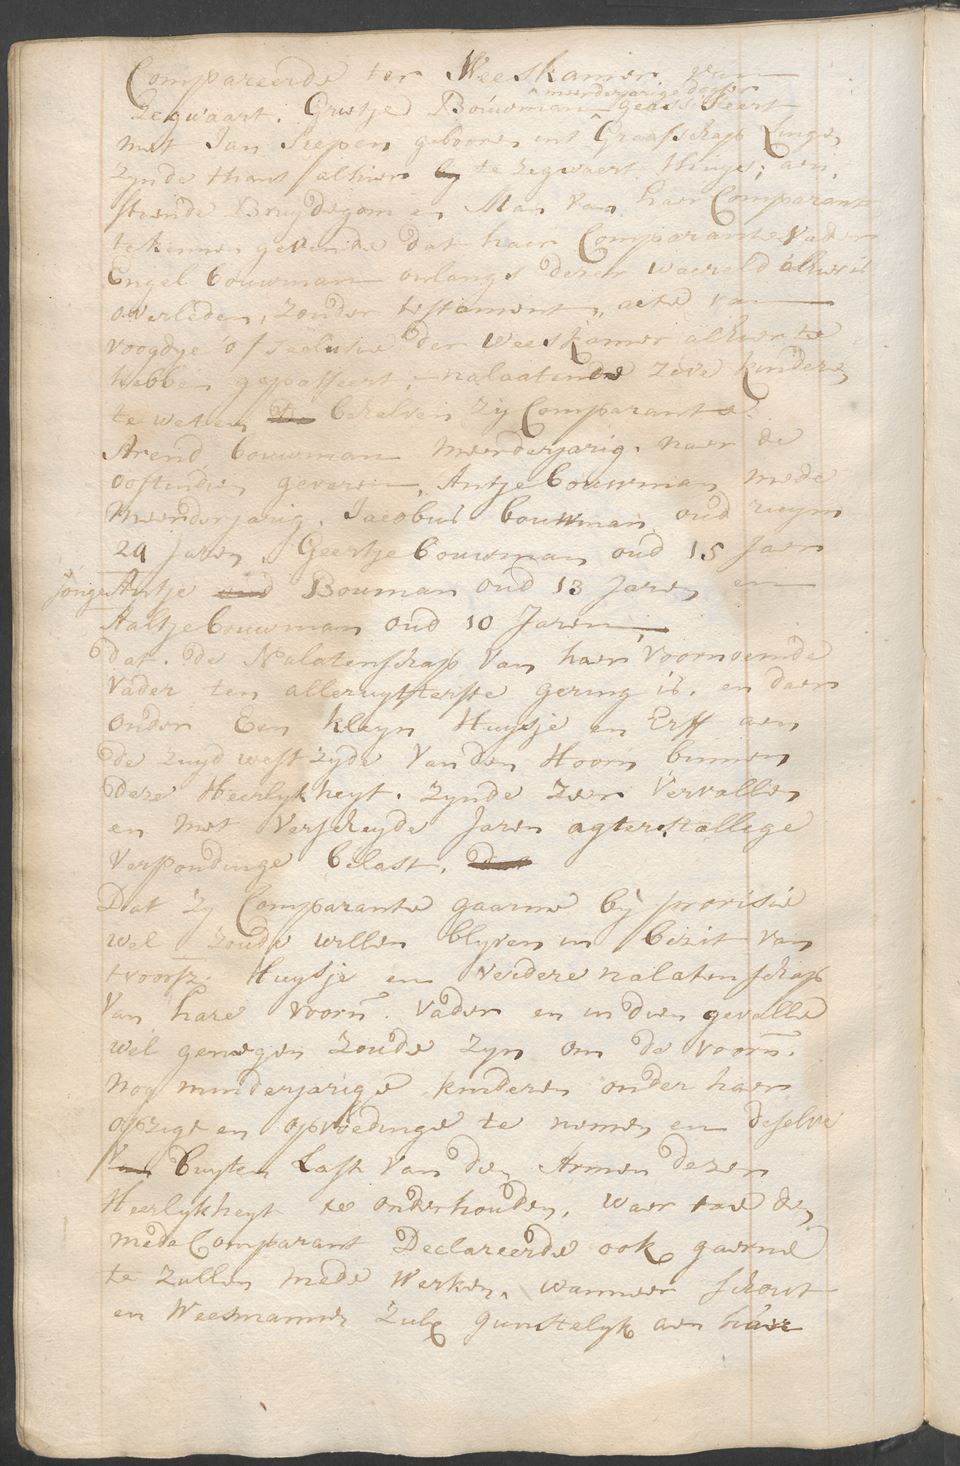 Compareerde ter Weeskamer van
Zegwaart. Grietje Bouwman meerderjarige dogter geassisteert
met Jan Siepen gebooren int Graafschap Lingen
zynde thans alhier by te Zegwaert t'huys; aen,
staende Bruydegom en Man van haer Comparante
te kennen gevende dat haer Comparantes Vader
Engel bouwman onlangs deser waereld alhier is
overleden, zonder testament, acte van
voogdye of seclusie der Weeskamer alhier te
hebben gepasseert, nalaatende zeve kindere,
te weten de behalven zy Comparante.
Arend bouwman meerderjarig. naer de
oostindien gevaren, Antje bouwman mede
meerderjarig. Jacobus bouwman oud ruym
24 jaren, Geertje bouwman oud 15 Jaer
jonge Antje oud Bouman oud 13 Jaren en
Aaltje bouwman oud 10 Jaren,
dat. de Nalatenschap van haer voornoemde
vader ten alleruytterste gering is. en daer
onder Een kleyn Huysje en Erff aen
de Zuyd west zyde van den Hoorn binnen
deze Heerlykheyt. zynde zeer vervallen
en met verscheyde Jaren agterstallige
verpondinge belast. dat
Dat zy Comparante gaarne by provisie
wel zoude willen blyven in bezit van
t voorsz. Huysje en verdere nalatenschap
van hare voorn. vader en in dien gevalle
wel genegen zoude zyn om de voorn.
nog minderjarige kinderen onder haer
opzigt en opvoedinge te nemen en deselve
van buyten Last van den Armen dezer
Heerlykheyt te onderhouden, waer toe de,
mede Comparant declareerde ook gaerne
te zullen mede werken, wanneer schout
en Weesmannen zulx gunstelyk aen haer